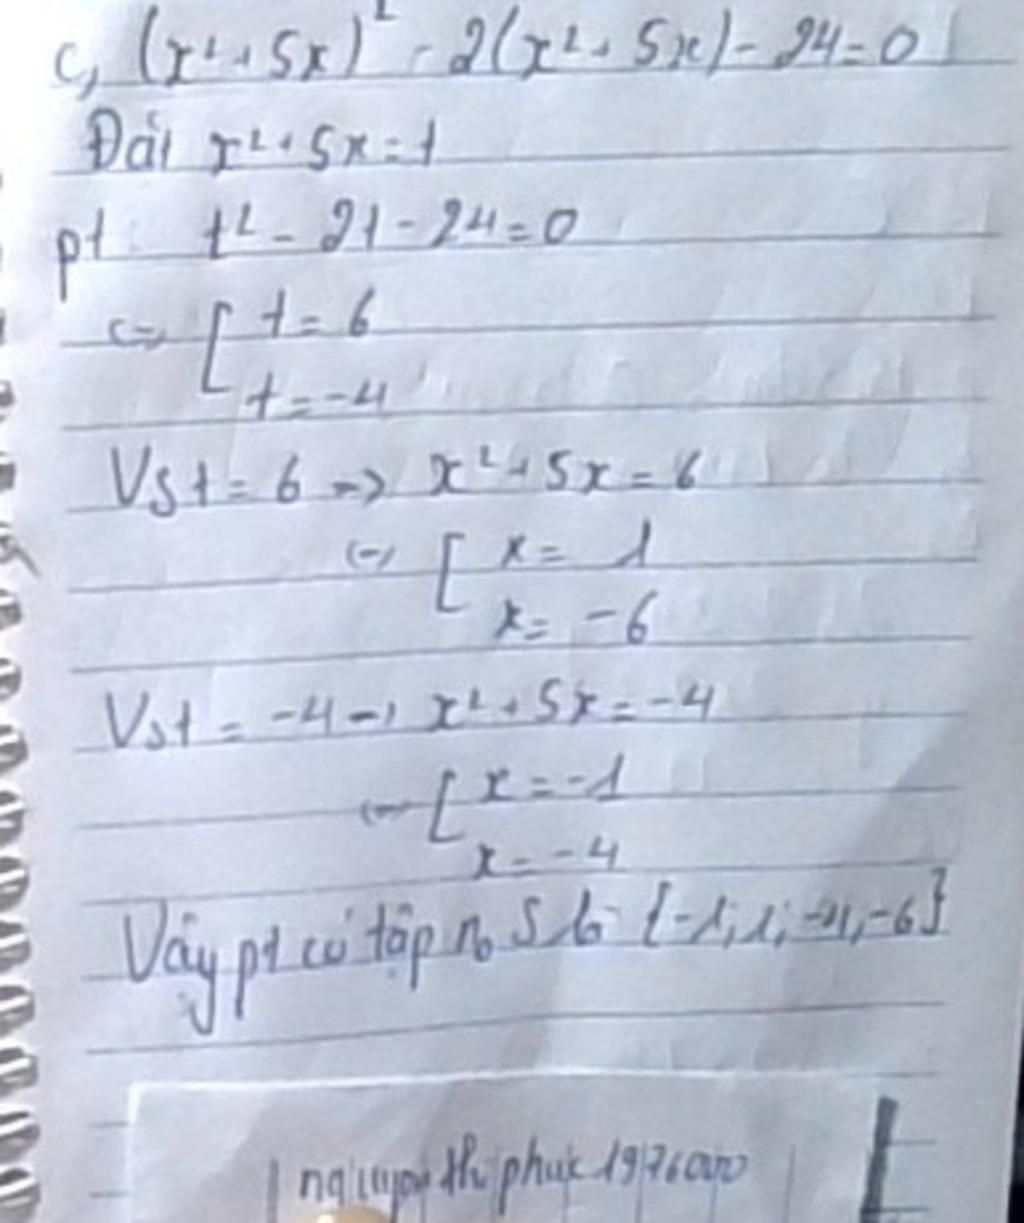 c, (x²+5x)² - 2(x²+5x) - 24 = 0
Đặt x²+5x = t
pt t² - 2t - 24 = 0
<=> [ t = 6
t = -4
Vs t = 6 => x²+5x = 6
<=> [ x = 1
x = -6
Vs t = -4 => x²+5x = -4
<=> [ x = -1
x = -4
Vậy pt có tập n₀ S là {-1; 1; -4; -6}
thị phuc 1976